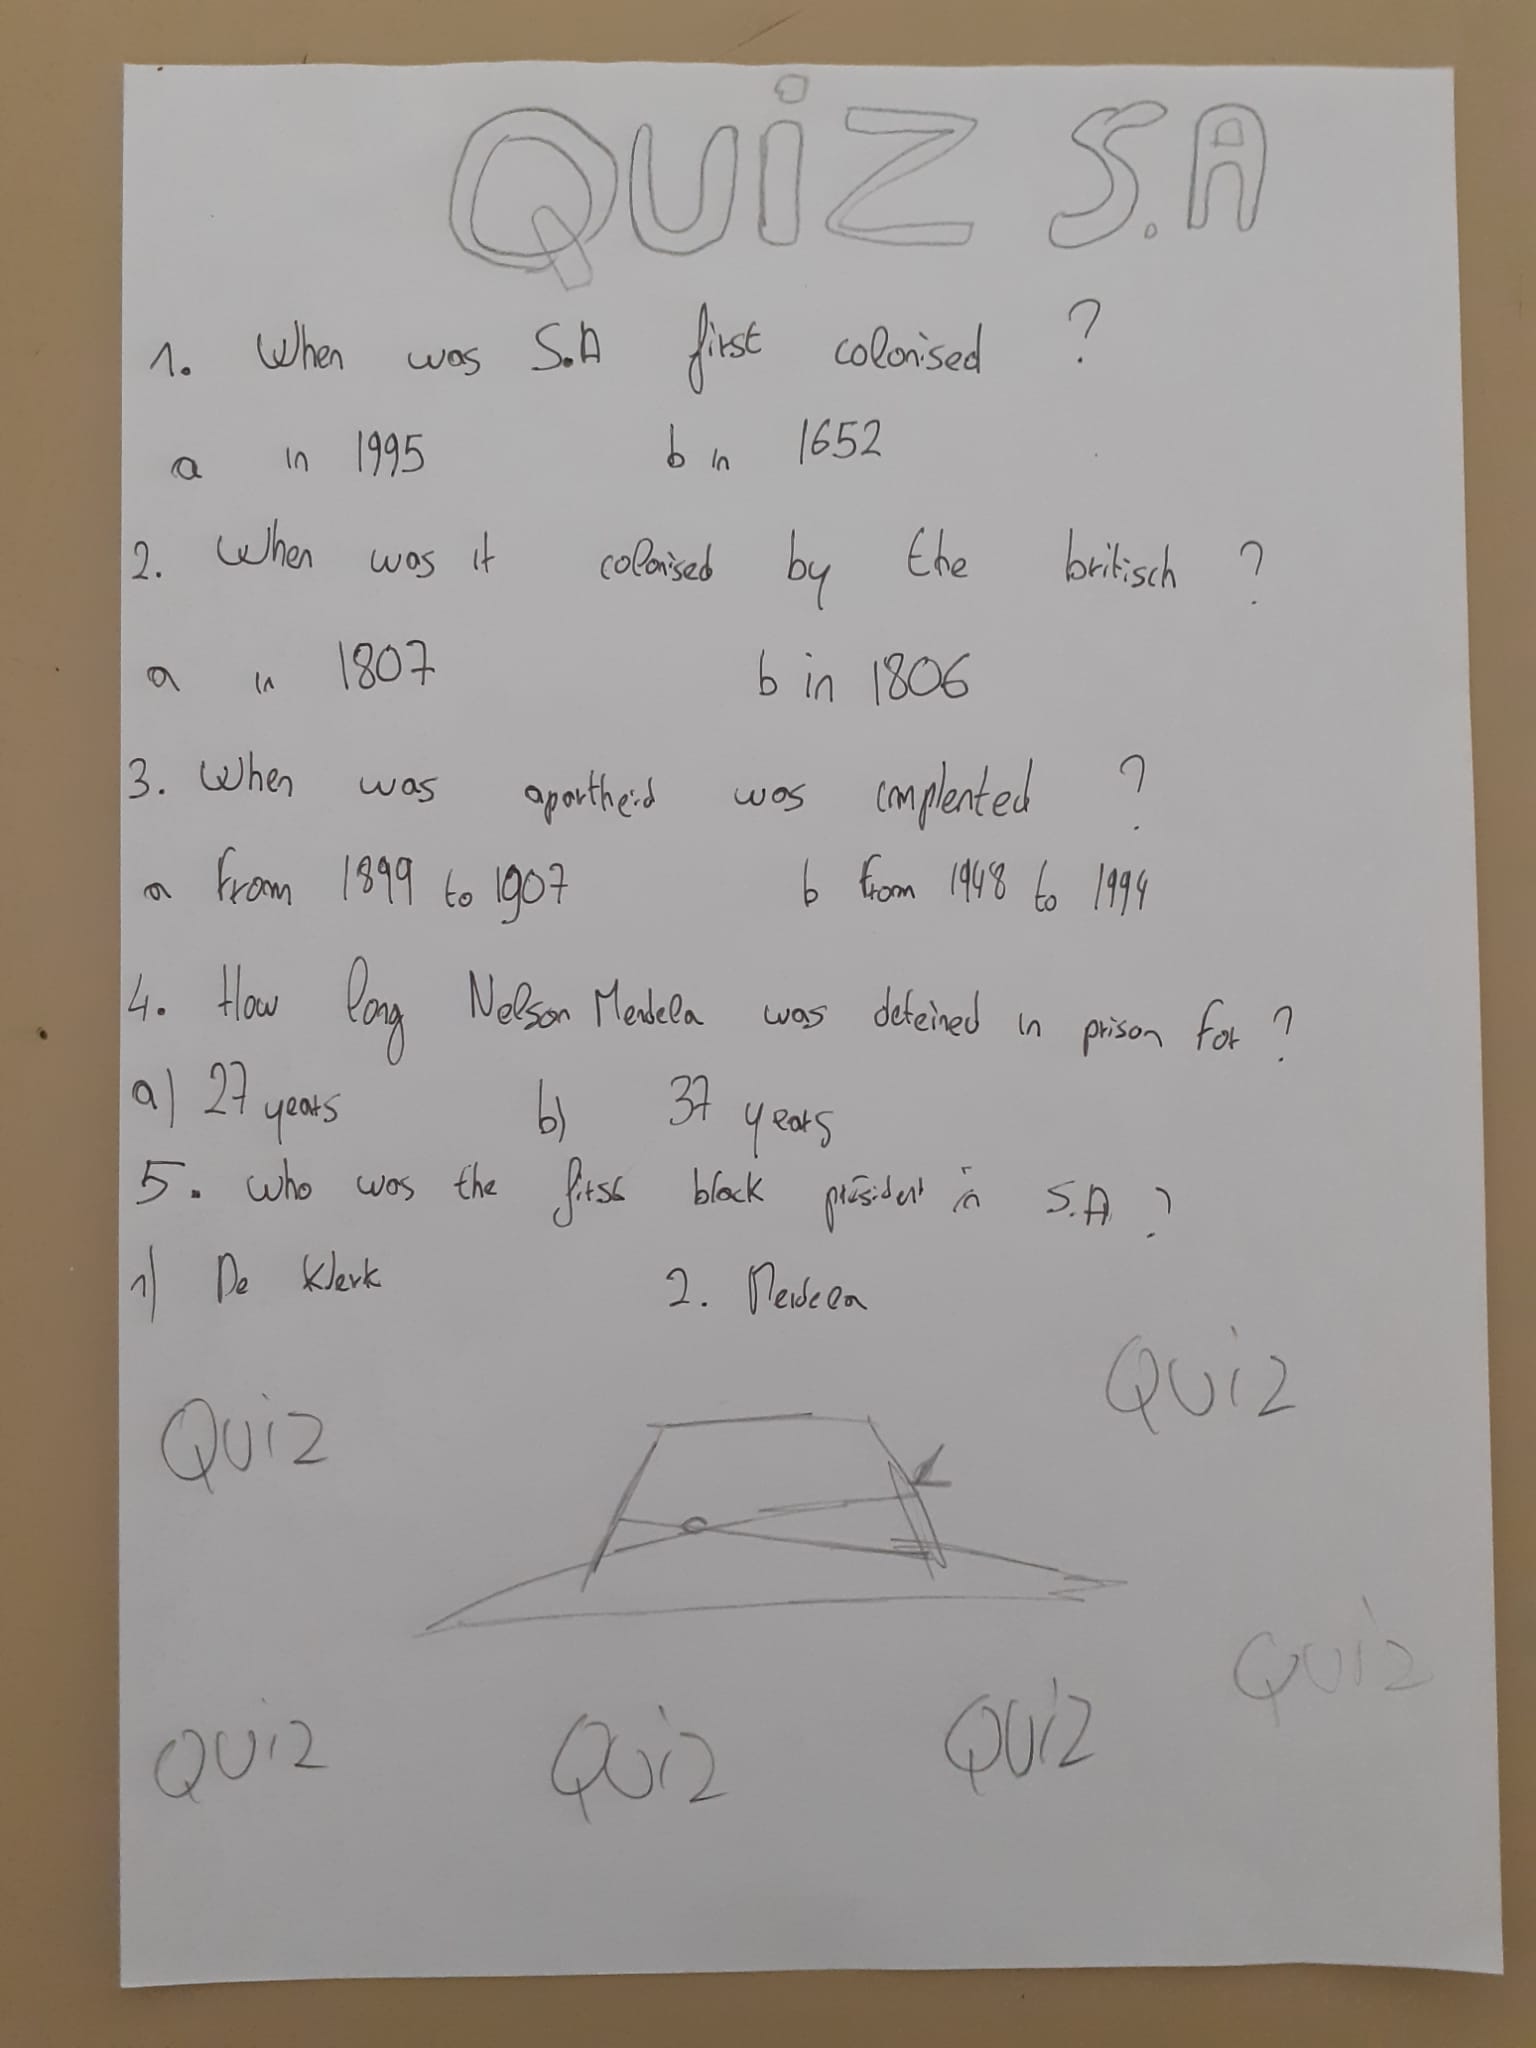 QUiZ S.A
1. When was S.A first colonised ?
a in 1995 b in 1652
2. When was it colonised by the britisch ?
a in 1807 b in 1806
3. When was apartheid was implented ?
a from 1899 to 1907 b from 1948 to 1994
4. How long Nelson Mendela was deteined in prison for ?
a) 27 years b) 37 years
5. who was the first black président in S.A ?
1) De Klerk 2. Mendela
QUiZ
QUiZ
QUiZ
QUiZ QUiZ QUiZ